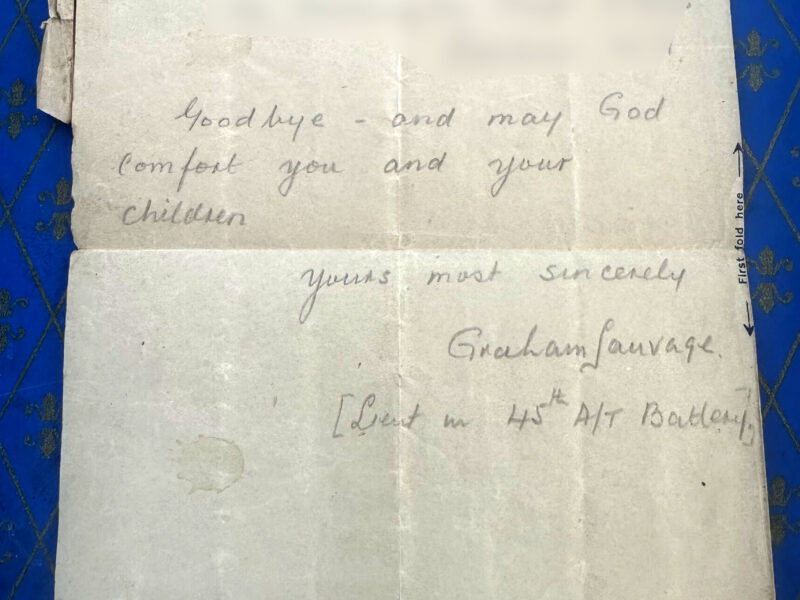 Goodbye - and may God
comfort you and your
children
yours most sincerely
Graham Sauvage.
[Lieut in 45th A/T Battery]
First fold here